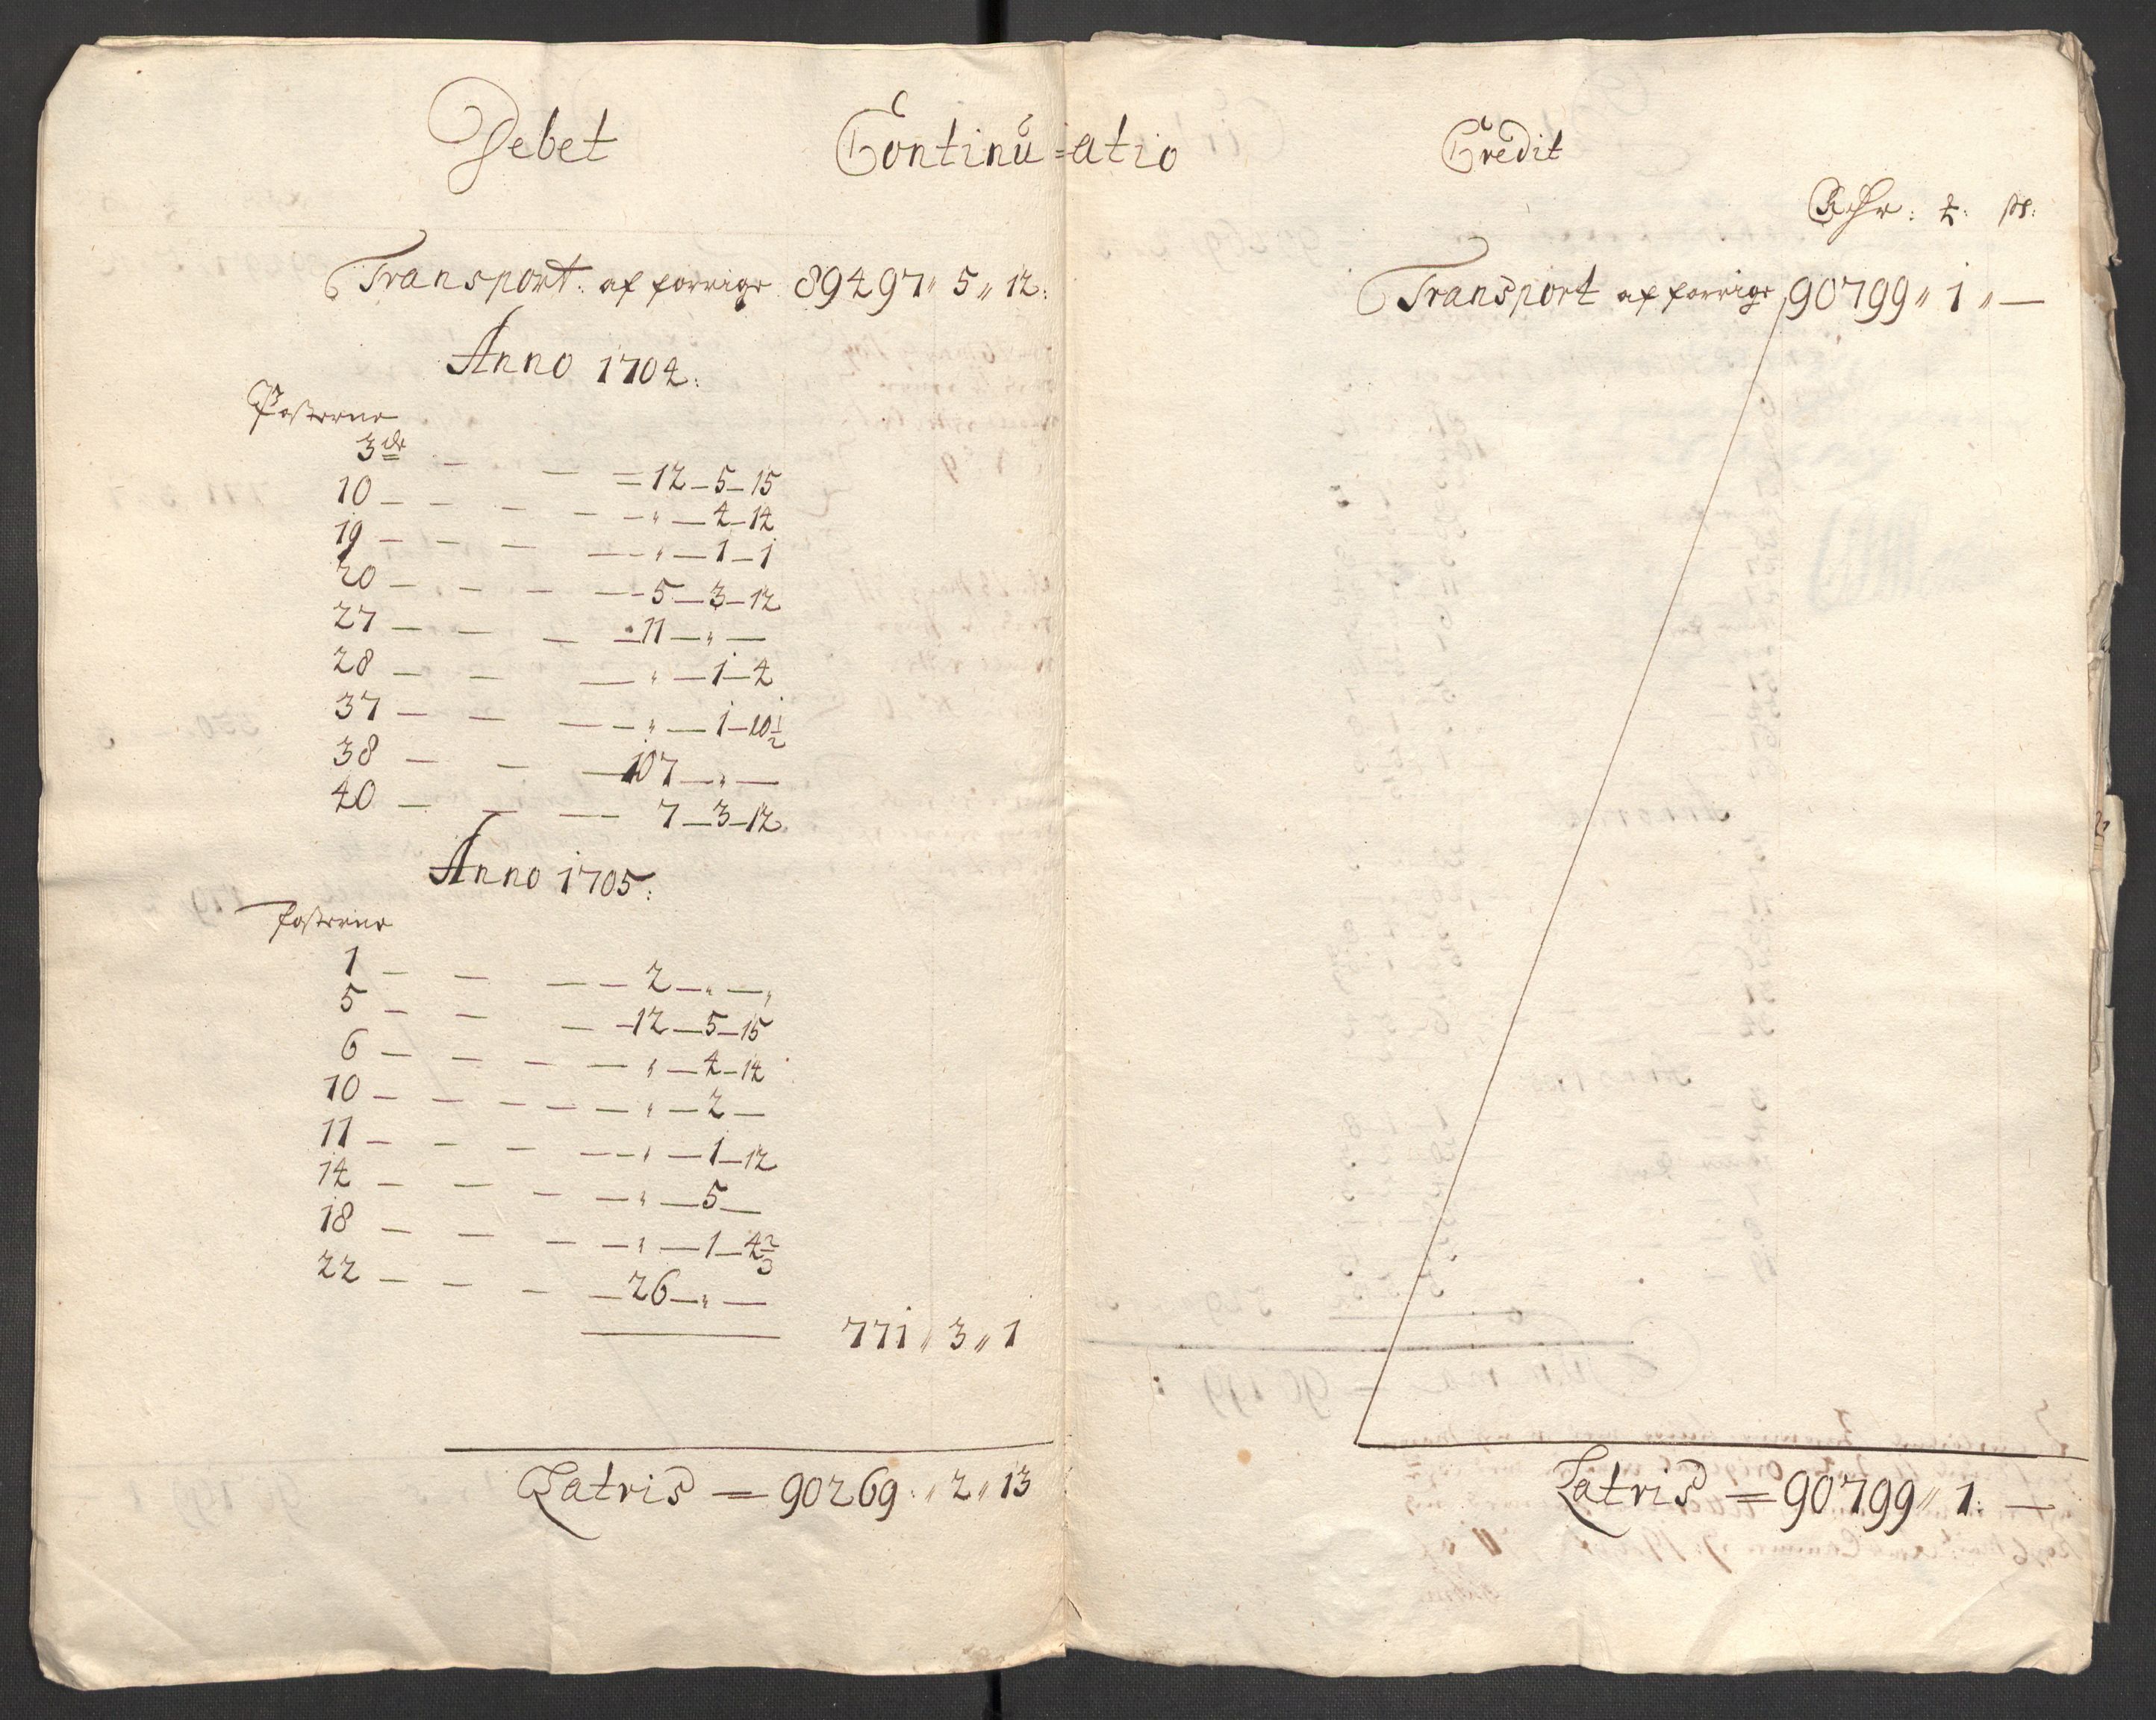 Debet Continu=atio Credit
Rdr: ƶ: ß:
Transport: af forrige 89497 „ 5 „ 12:
Anno 1704:
Posterne
3de — — = 12 — 5 — 15
10 — — — — — „ — 4 — 14
19 — — — — — „ — 1 — 1
20 — — — — — 5 — 3 — 12
27 — — — — 11 — „ —
28 — — — „ — 1 — 4
37 — — — — „ — 1 — 10½
38 — — — 107 — „ —
40 — — — 7 — 3 — 12
Anno 1705:
Posterne
1 — — — — 2 — „ — „
5 — — — — 12 — 5 — 15
6 — — — — „ — 4 — 14
10 — — — — — „ — 2 —
11 — — — — — „ — 1 — 12
14 — — — — „ — 5 —
18 — — — — „ — 1 — 4⅔
22 — — — — 26 — „ —
771 „ 3 „ 1
Latris = 90269 „ 2 „ 13
Transport af forrige 90799 „ 1 „ —
Latris = 90799 „ 1: —